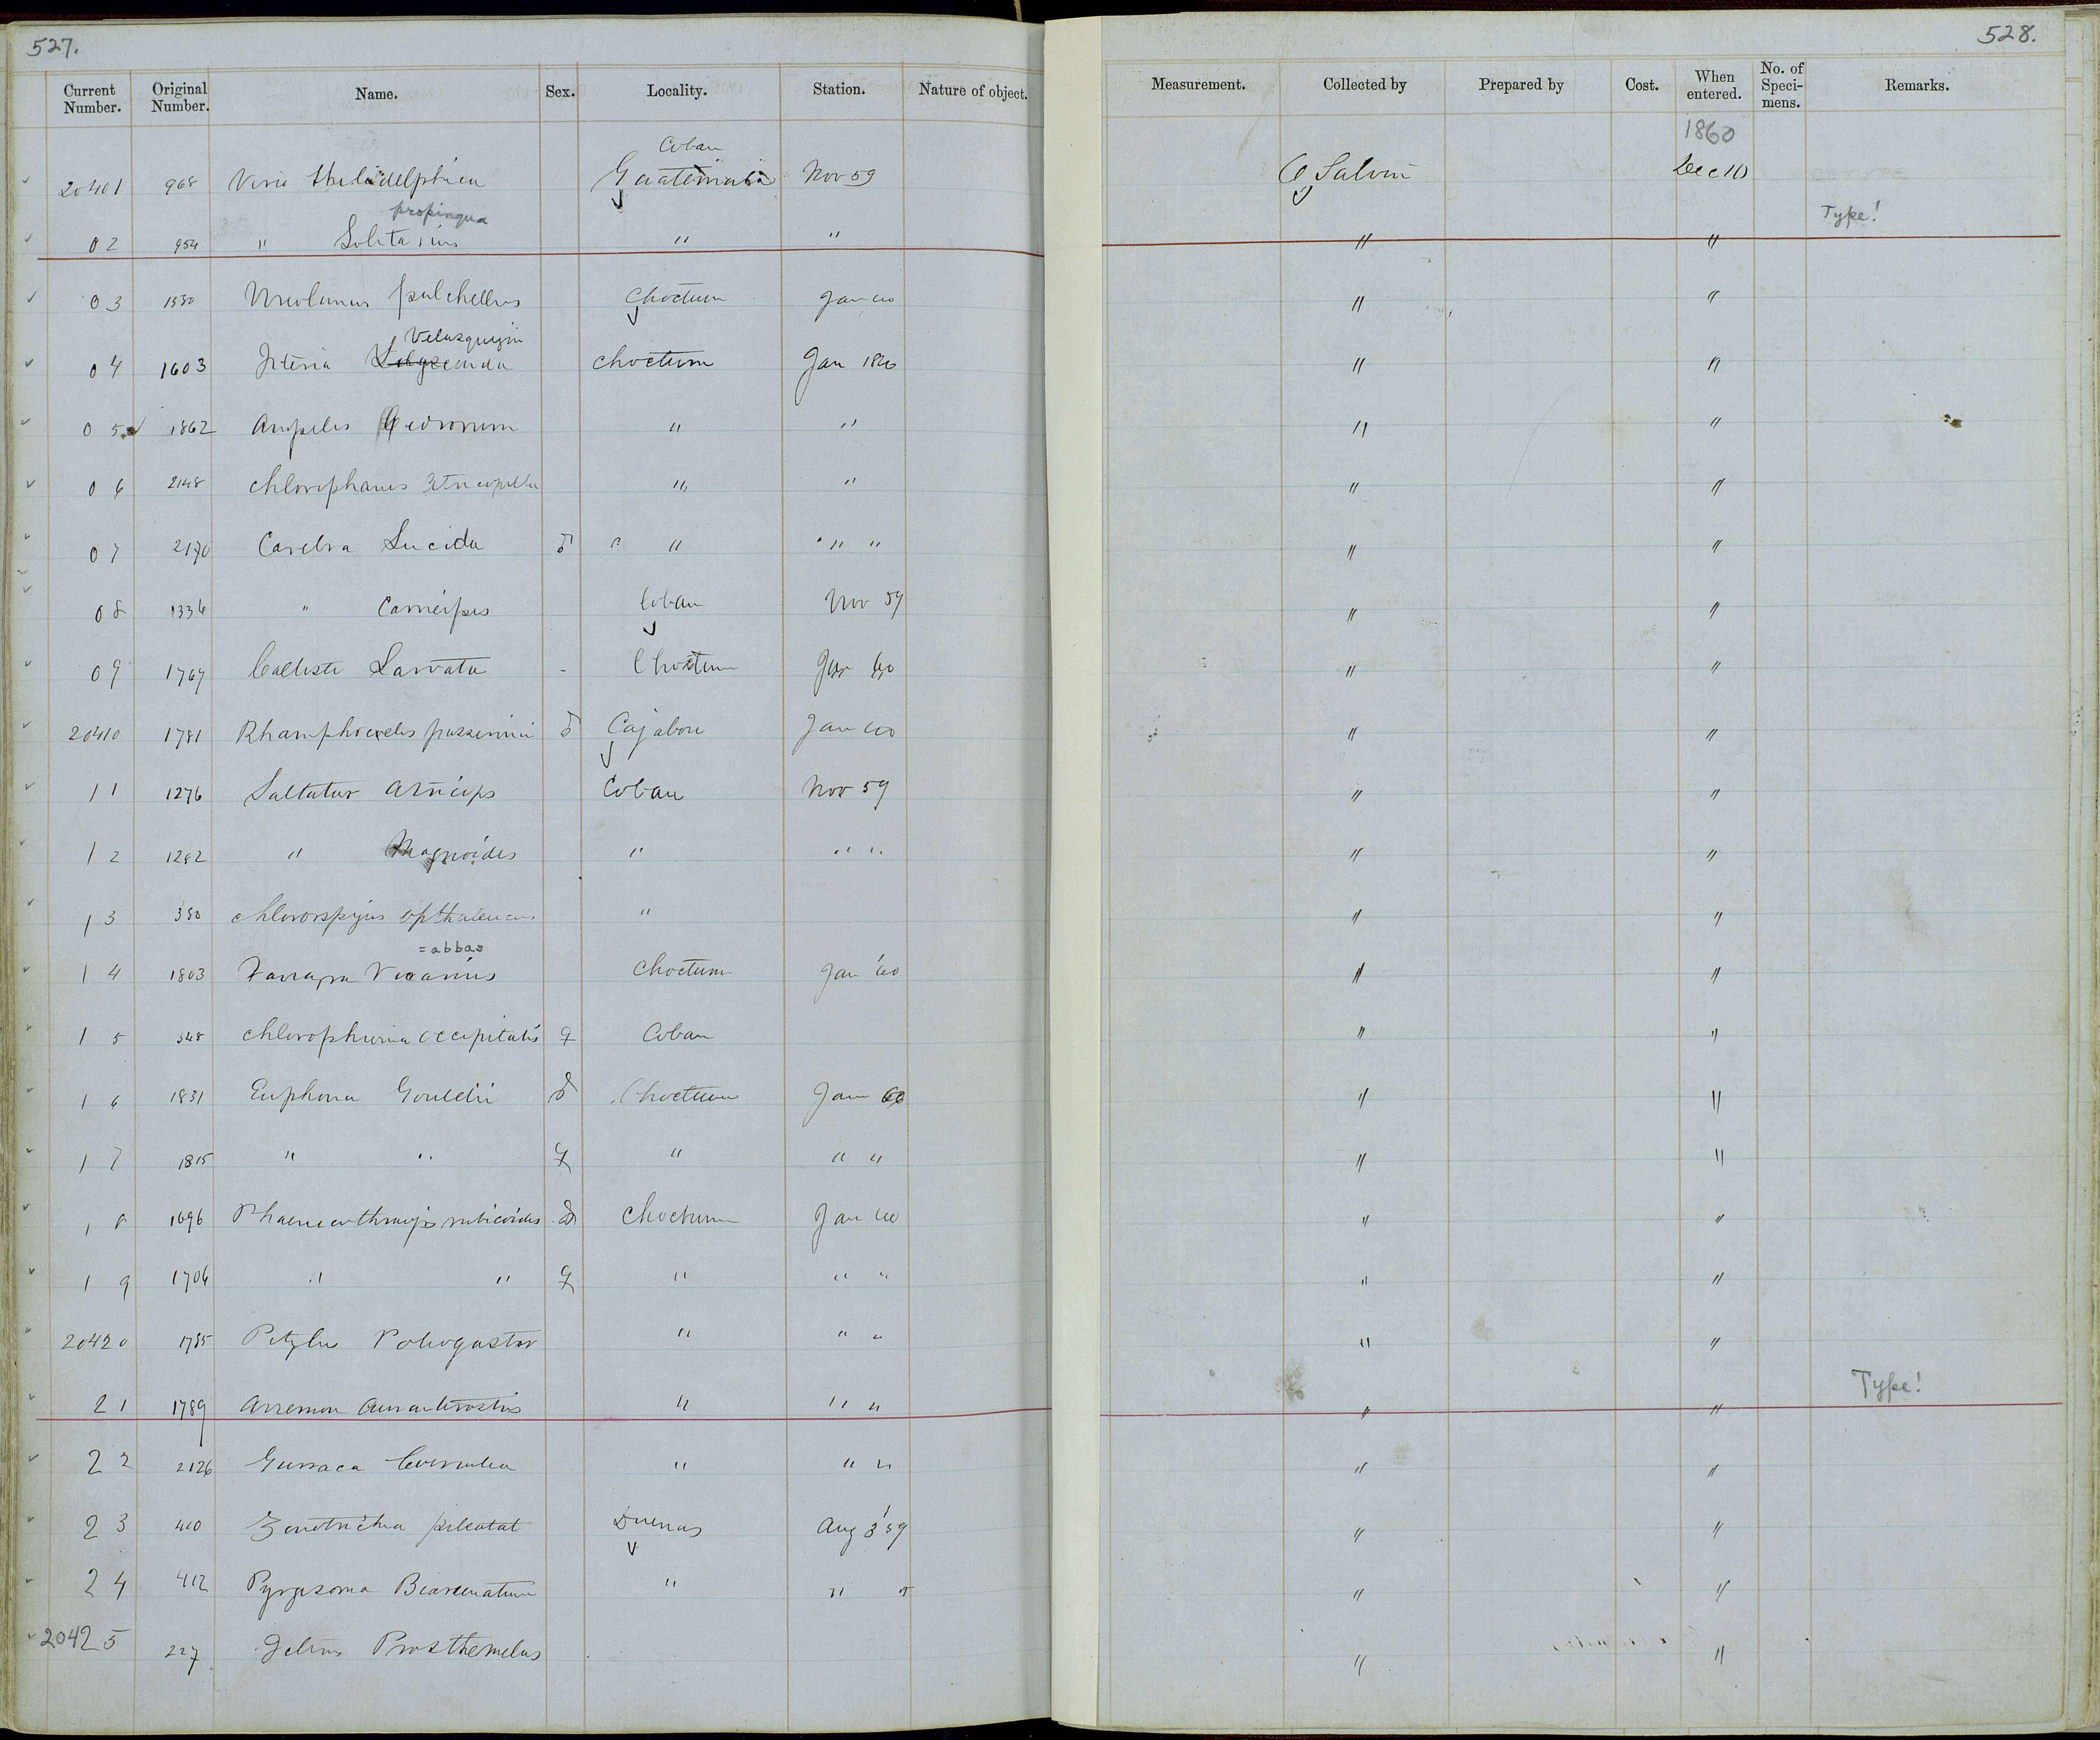 527.
528.
Current Number. Original Number. Name. Sex. Locality. Station. Nature of object. Measurement. Collected by Prepared by Cost. When entered. No. of Specimens. Remarks.
1860
Coban
20401 968 Vireo Philadelphica Guatemala Nov 59 O Salvin Dec 10
propinqua Type!
02 954 " Solitarius " " " "
03 1350 Vireolanius pulchellus Choctum Jan 60 " "
Velasquezii
04 1603 Icteria choctum Jan 1860 " "
05 1862 Ampelis Cedrorum " " " "
06 2148 Chlorophanes " " " "
07 2170 Careba Lucida ♂ " " " " " "
08 1336 " Carneipes Coban Nov 59 " "
09 1767 Calliste Larvata - Choctum Jan 60 " "
20410 1781 Rhamphocelis passerinii ♂ Cajabon Jan 60 " "
11 1276 Saltator Atriceps Coban Nov 59 " "
12 1282 " Magnoides " " " " "
13 350 chlorospigus opthalmicus " " "
= abbas
14 1803 Tanagra Vicarius Choctum Jan '60 " "
15 348 chlorophonia occipitalis ♀ Coban " "
16 1831 Euphonia Gouldii ♂ Choctum Jan 60 " "
17 1815 " " ♀ " " " " "
18 1696 rubicoides ♂ Choctum Jan 60 " "
19 1706 " " ♀ " " " " "
20420 1785 Pitylus Poliogaster " " " " "
21 1789 Arremon Aurantirostris " " " " " Type!
22 2126 Guiraca Coerulea " " " " "
23 410 Zonotrichia pileatat Duenas Aug 3 '59 " "
24 412 Pyrgisoma Biarcuatum " " " "
20425 227 Icterus Prosthemelas " "